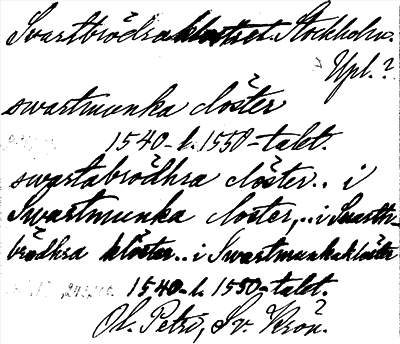 Svartbrödraklostret Stockholm.
Upl.?
swartmunka closter
1540-l. 1550-talet.
swartabrödhra closter.. i
Swartmunka closter,.. i Swartth-
brödhra klöster.. i Swartmunkaklöster
1540-l. 1550-talet.
Ol. Petri, Sv. Krön.?